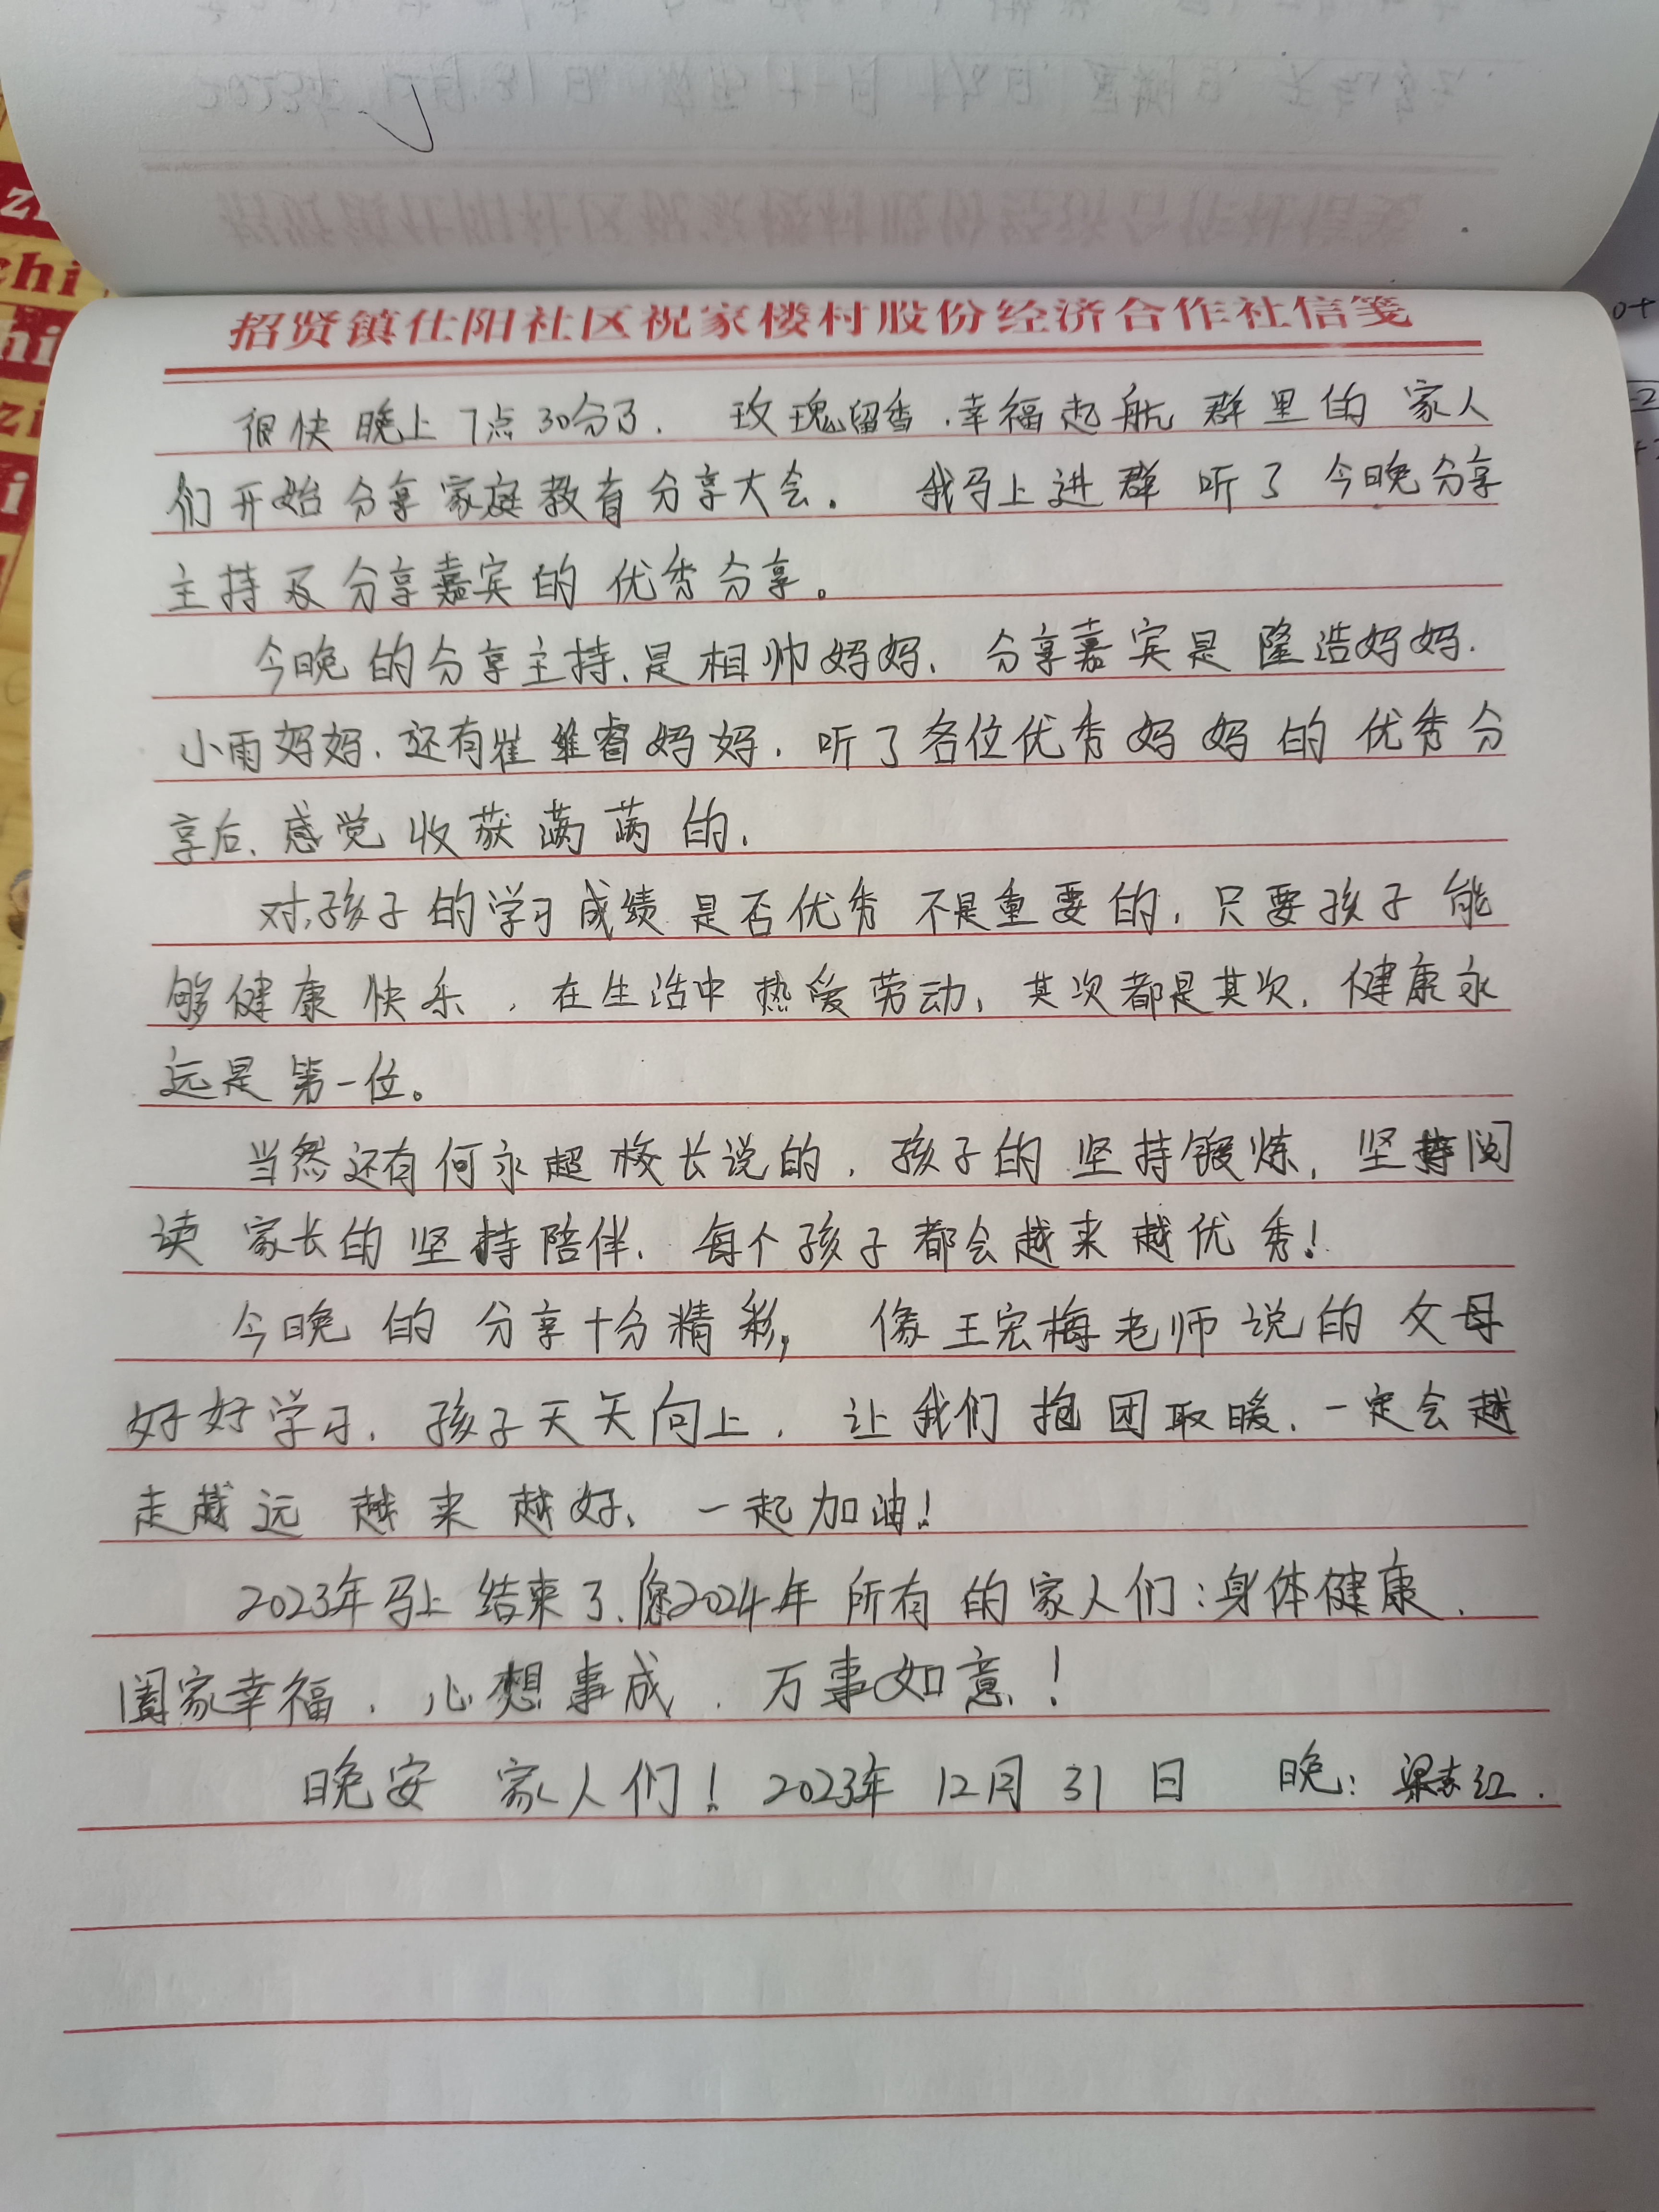 招贤镇仕阳社区祝家楼村股份经济合作社信笺
很快晚上7点30分了. 玫瑰留香.幸福起航 群里的 家人
们开始分享家庭教育分享大会。 我马上进群 听了 今晚分享
主持及分享嘉宾的 优秀分享。
今晚的分享主持、是相帅妈妈、分享嘉宾是 隆浩妈妈.
小雨妈妈.还有崔维睿妈妈.听了各位优秀妈妈的优秀分
享后、感觉 收获满满的.
对孩子的学习成绩是否优秀 不是重要的.只要孩子 能
够健康快乐,在生活中热爱劳动、其次都是其次.健康永
远是第一位。
当然还有何永超校长说的.孩子的坚持锻炼,坚持阅
读 家长的坚持陪伴.每个孩子都会越来越优秀!
今晚的分享十分精彩, 像王宏梅老师说的父母
好好学习.孩子天天向上. 让我们抱团取暖.一定会越
走越远 越来越好、一起加油!
2023年马上结束了、2024年所有的家人们:身体健康.
阖家幸福.心想事成.万事如意!
晚安 家人们! 2023年 12月 31日 晚: 梁红.